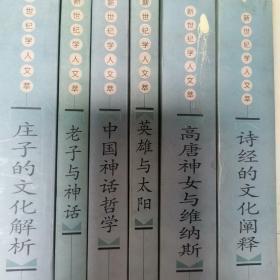 新世纪学人文萃
庄子的文化解析
新世纪学人文萃
老子与神话
新世纪学人文萃
中国神话哲学
新世纪学人文萃
英雄与太阳
新世纪学人文萃
高唐神女与维纳斯
新世纪学人文萃
诗经的文化阐释